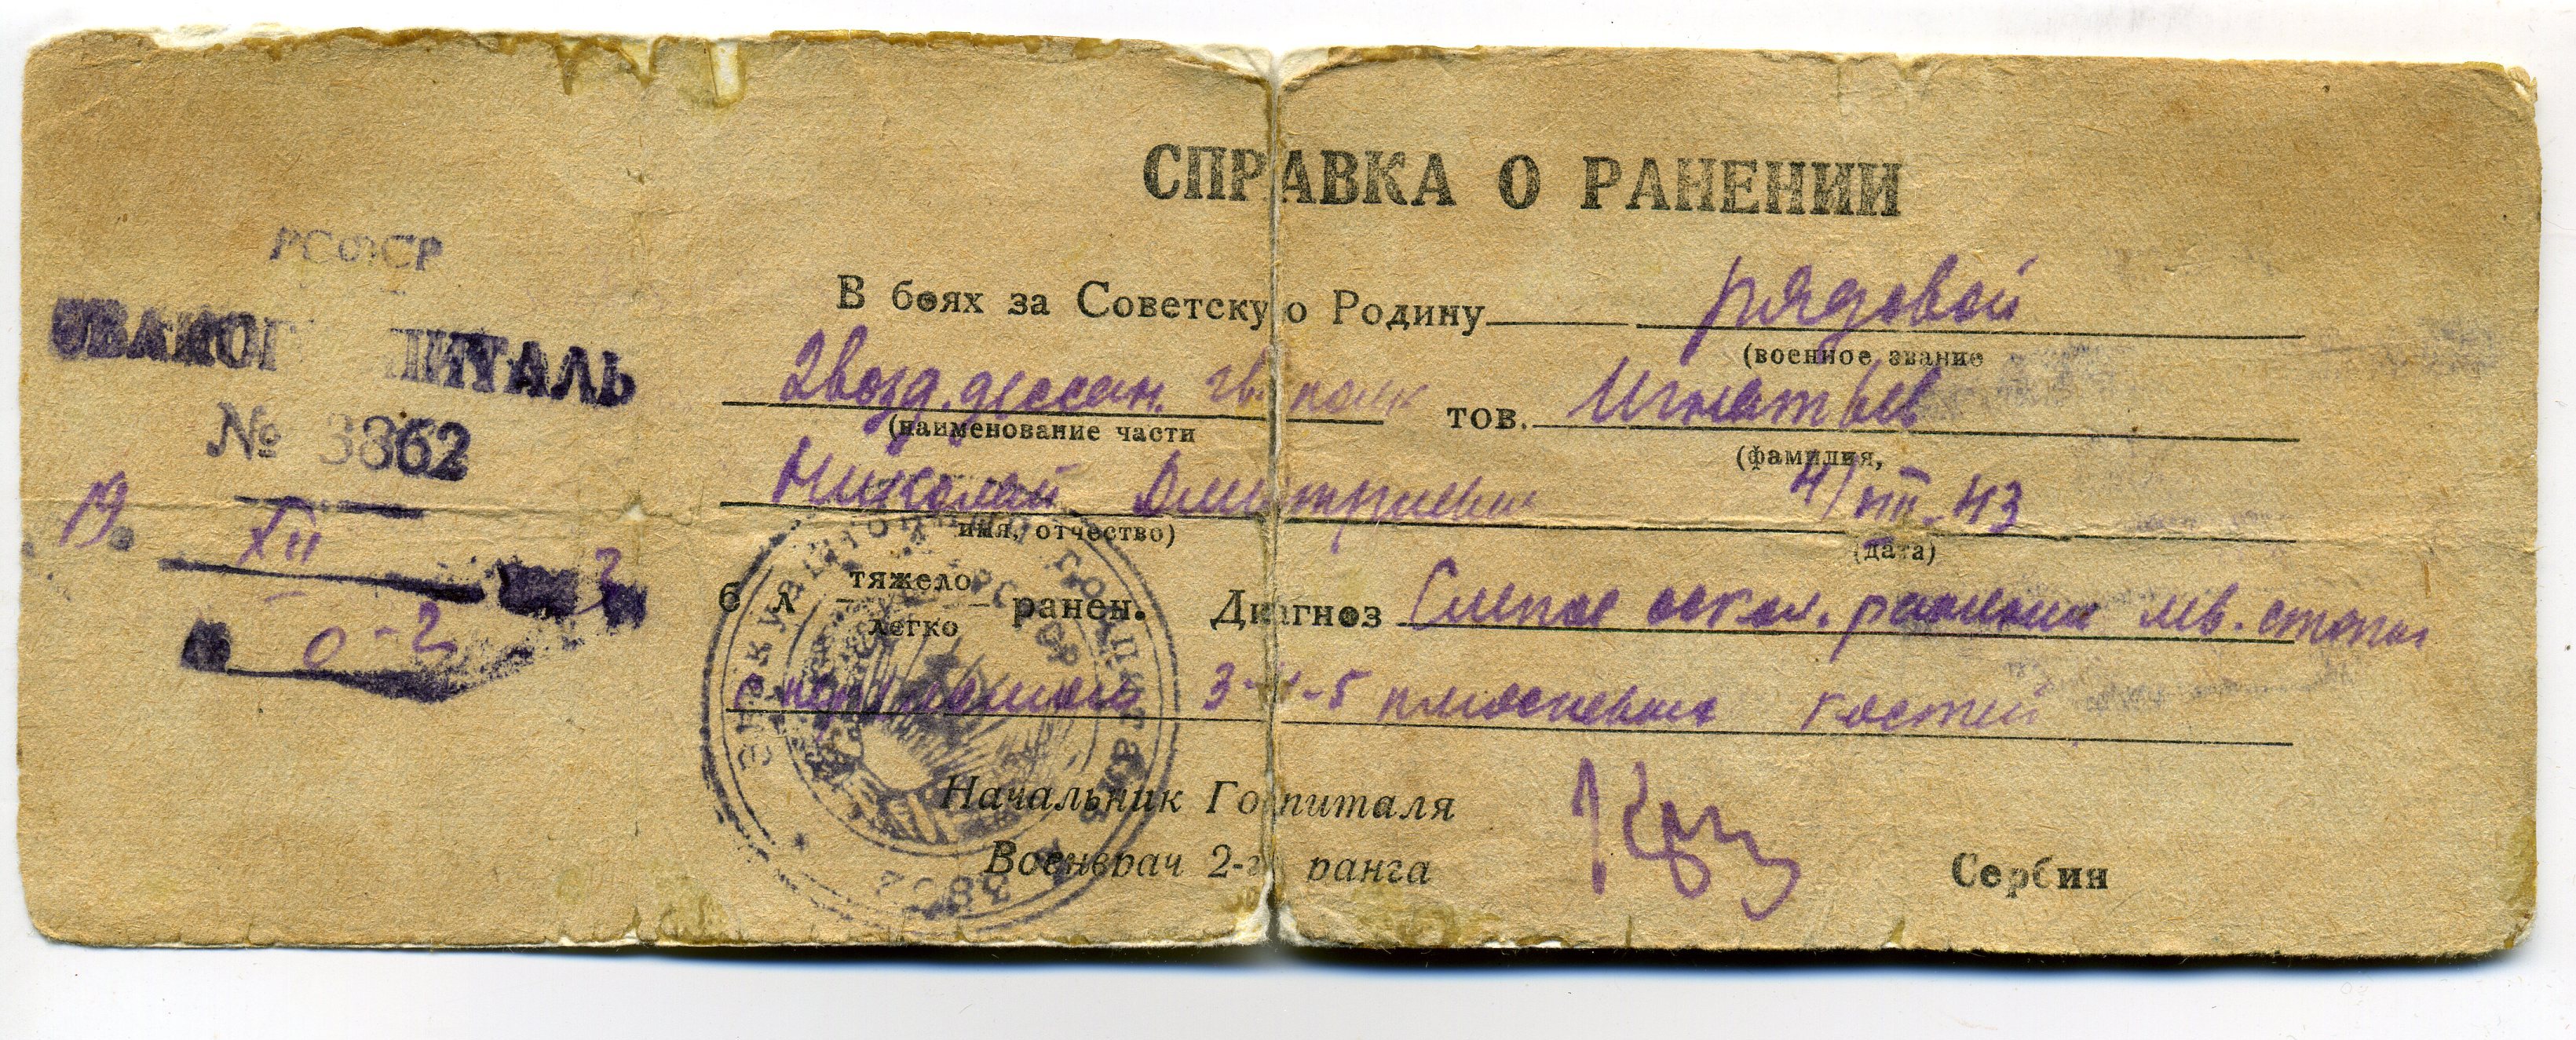 СПРАВКА О РАНЕНИИ
РСФСР
ЭВАКОГ ПИТАЛЬ
№ 3862
19 XII 3
0-2
В боях за Советску о Родину рядовой
(военное звание
2 возд. дессан. гв. полк тов. Игнатьев
(наименование части
(фамилия,
Николай Дмитриевич 4/VIII-43
имя, отчество)
(дата)
б л тяжело ранен. Диагноз Слепое оскол. ранение лев. стопы
легко
3-4-5 плюсневых костей
Начальник Госпиталя
Военврач 2-го ранга Сербин